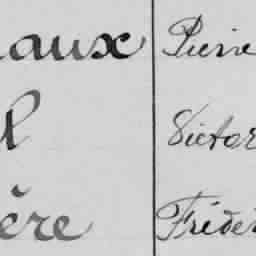 aux Pierre
l Victor
ère Frédér